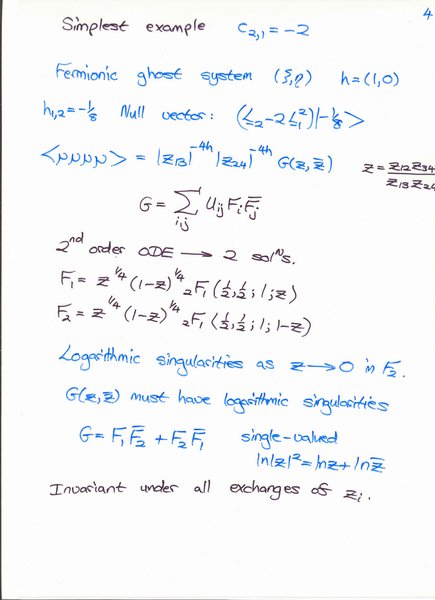 4
Simplest example C₂,₁ = -2
Fermionic ghost system (ξ,η) h=(1,0)
h₁,₂ = -1/8 Null vector: (L₋₂ - 2L₋₁²)|-1/8>
<μμμμ> = |z₁₃|^-4h |z₂₄|^-4h G(z,z̄) z = z₁₂z₃₄/z₁₃z₂₄
G = Σ_ij U_ij F_i F̄_j
2nd order ODE → 2 solⁿs.
F₁ = z^1/4 (1-z)^1/4 ₂F₁(½,½;1;z)
F₂ = z^1/4 (1-z)^1/4 ₂F₁(½,½;1;1-z)
Logarithmic singularities as z → 0 in F₂.
G(z,z̄) must have logarithmic singularities
G = F₁F̄₂ + F₂F̄₁ single-valued
ln|z|² = lnz + lnz̄
Invariant under all exchanges of z_i.